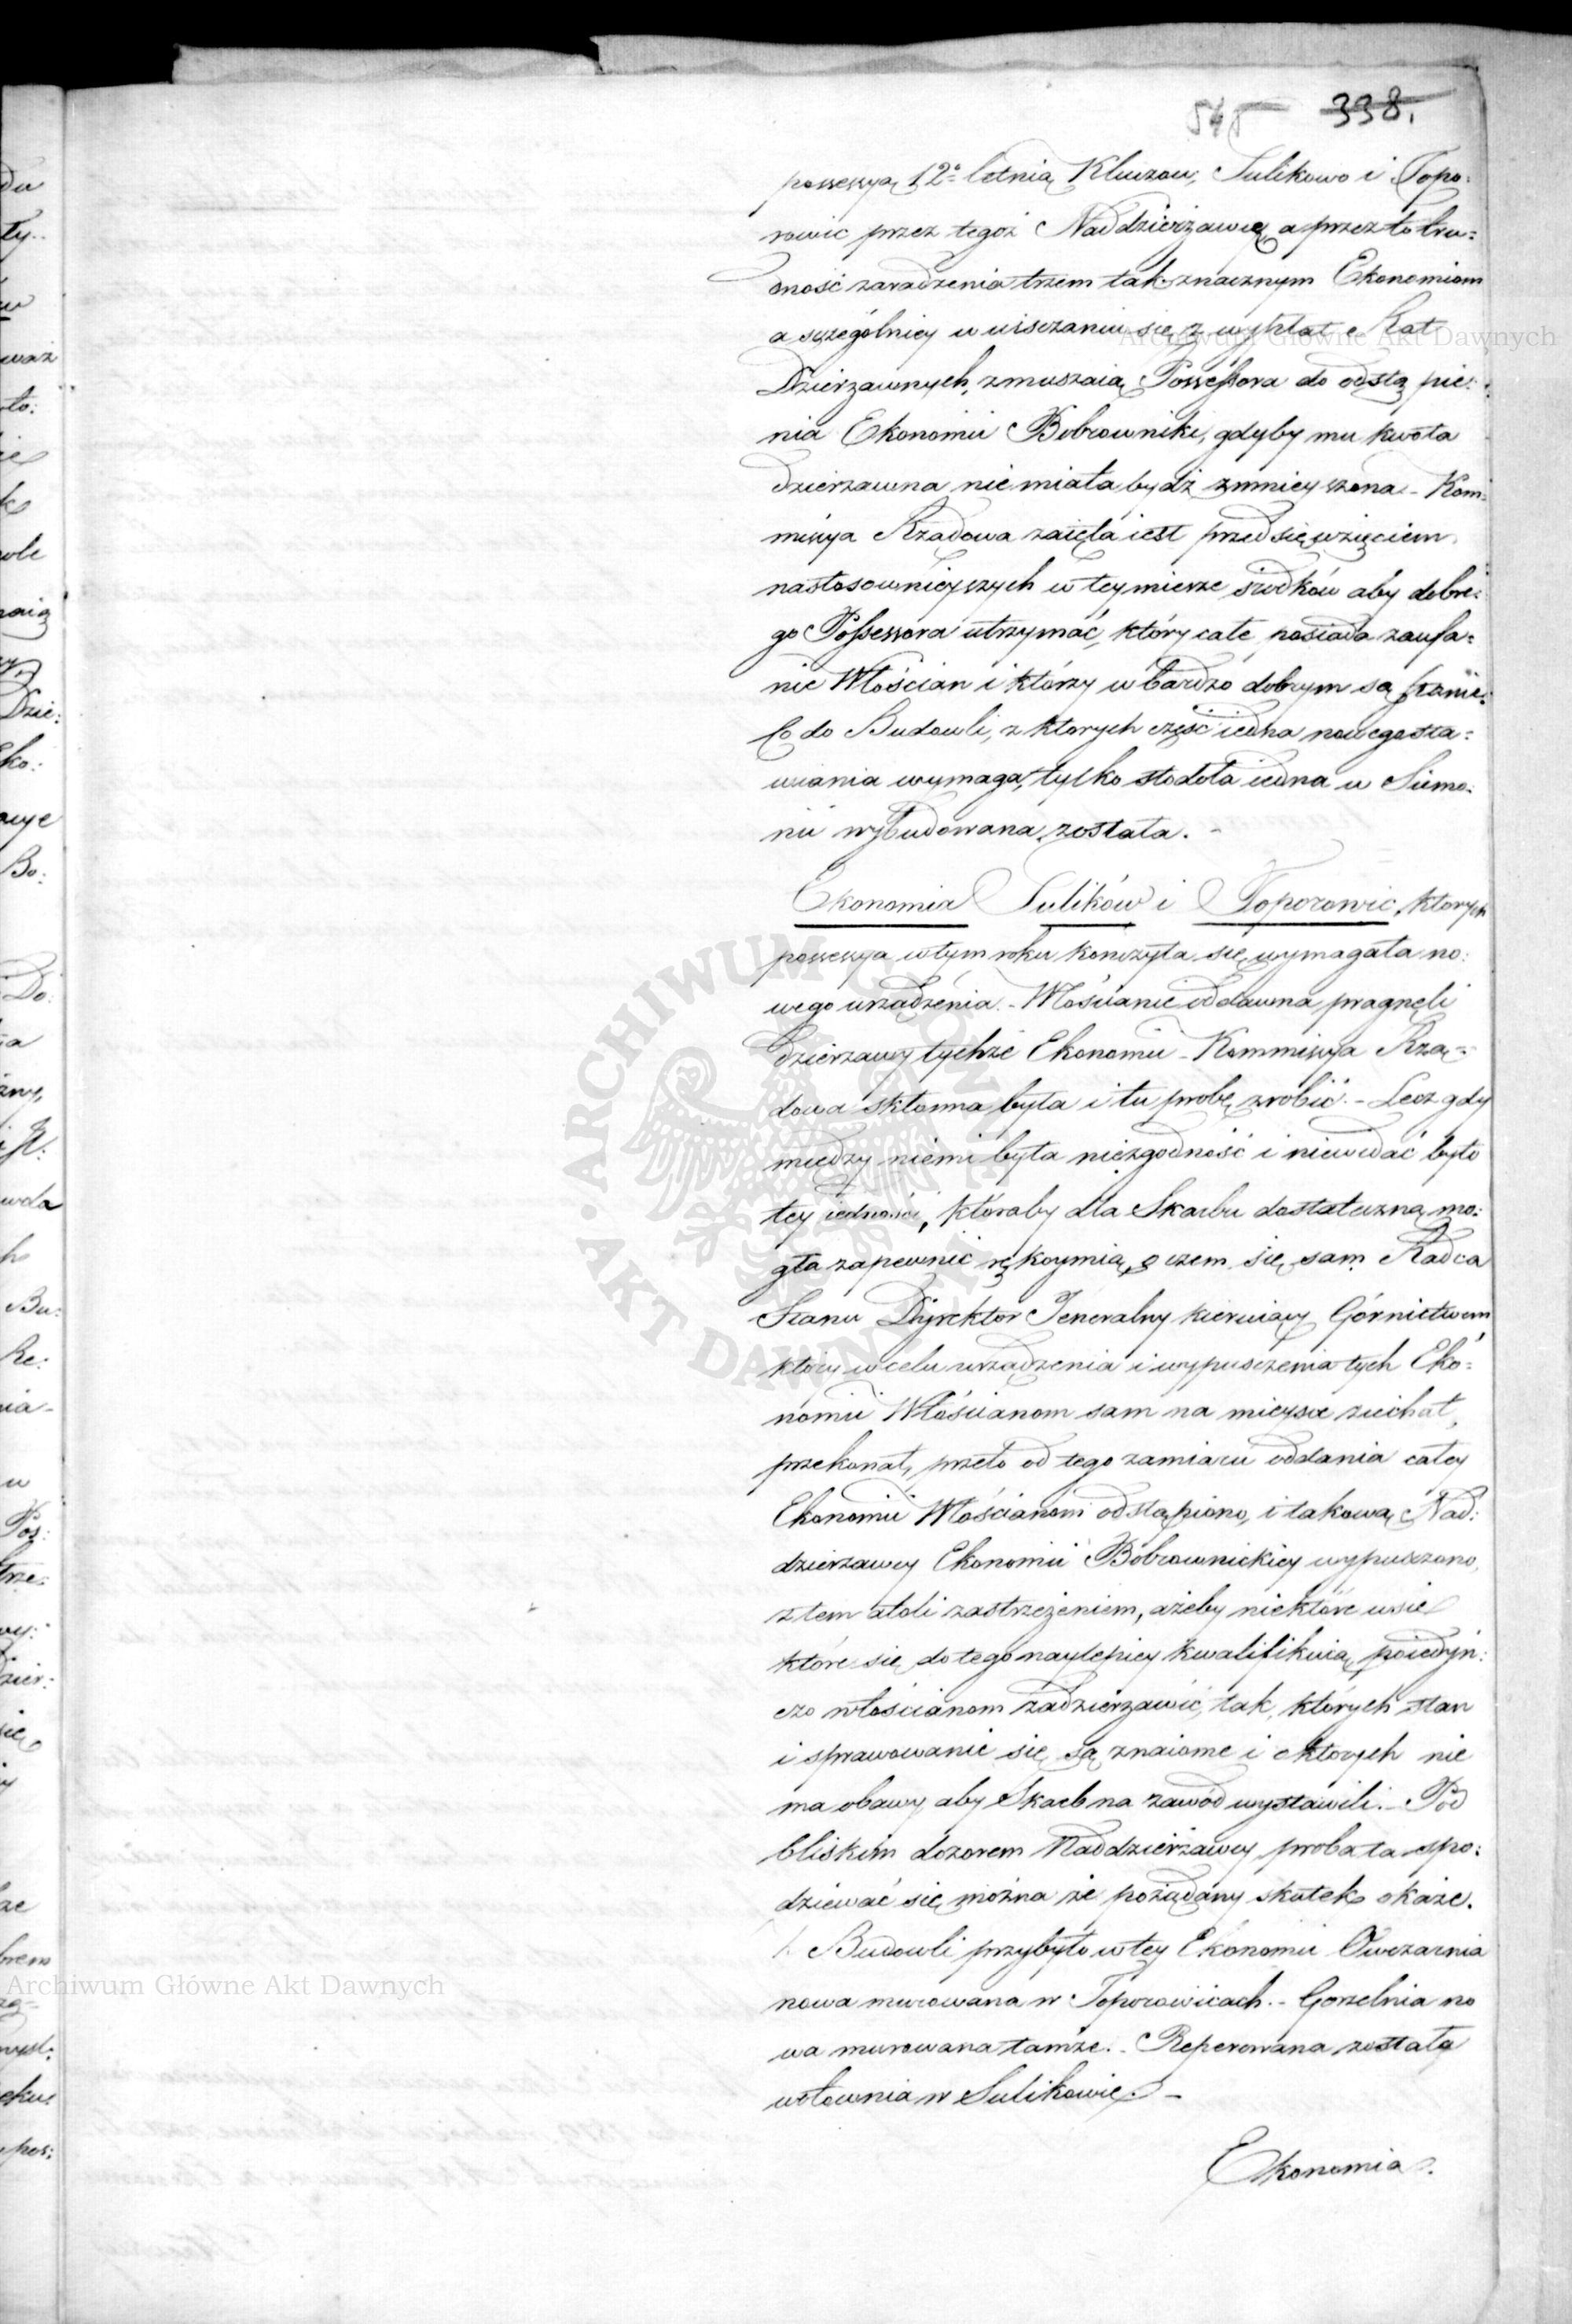 545 338.
possessyą 12º letnią Kluczow, Sulikowo i Topo:
rowic przez tegoż Naddzierżawcę a przez to tru:
dność zaradzenia trzem tak znacznym Ekonomiom
a sczególniey w uisczaniu się z wypłat Rat
Dzierzawnych, zmuszaią Possessora do odstą pie:
nia Ekonomii Bobrowniki, gdyby mu kwota
dzierzawna nie miała bydź zmnieyszona - Kom:
missya Rządowa zaięta iest przedsięwzięciem
nastosownieyszych w tey mierze środków aby dobre:
go Possessora utrzymać, który całe posiada zaufa:
nie Włościan i którzy w bardzo dobrym są stanie.
Co do Budowli, z ktorych część iedna nowego sta:
wiania wymaga, tylko stodoła iedna w Siemo:
nii wybudowana została. -
Ekonomia Sulików i Toporowic, ktorych
possessya w tym roku konczyła się, wymagała no:
wego urządzenia. - Włościanie oddawna pragnęli
dzierzawy tychże Ekonomii - Kommissya Rzą-
dowa skłonna była i tu probę zrobić. - Lecz gdy
miedzy niemi była niezgodność i niewidać było
tey iedności, któraby dla Skarbu dostateczną mo:
gła zapewnić rękoymią, o czem się sam Radca
Stanu Dyrektor Jeneralny kieruiący Górnictwem
który w celu urządzenia i wypusczenia tych Eko:
nomii Włościanom sam na mieysce ziechał,
przekonał, przeto od tego zamiaru oddania całey
Ekonomii Włościanom odstąpiono, i takową Nad:
dzierzawcy Ekonomii Bobrownickiey wypusczono,
z tem atoli zastrzeżeniem, ażeby niektóre wsie
które się do tego naylepiey kwalifikuią poiedyn:
czo włościanom zadzierżawić, tak, których stan
i sprawowanie się są znaiome i ktorych nie
ma obawy aby Skarb na zawód wystawili. - Pod
bliskim dozorem Naddzierżawcy proba ta spo:
dziewać się można że pożądany skutek okaże.
Budowli przybyło w tey Ekonomii Owczarnia
nowa murowana w Toporowicach. - Gorzelnia no
wa murowana tamże. - Reperowana została
wołownia w Sulikowie. -
Ekonomia.
Archiwum Główne Akt Dawnych
Archiwum Główne Akt Dawnych
ARCHIWUM GŁÓWNE AKT DAWNYCH